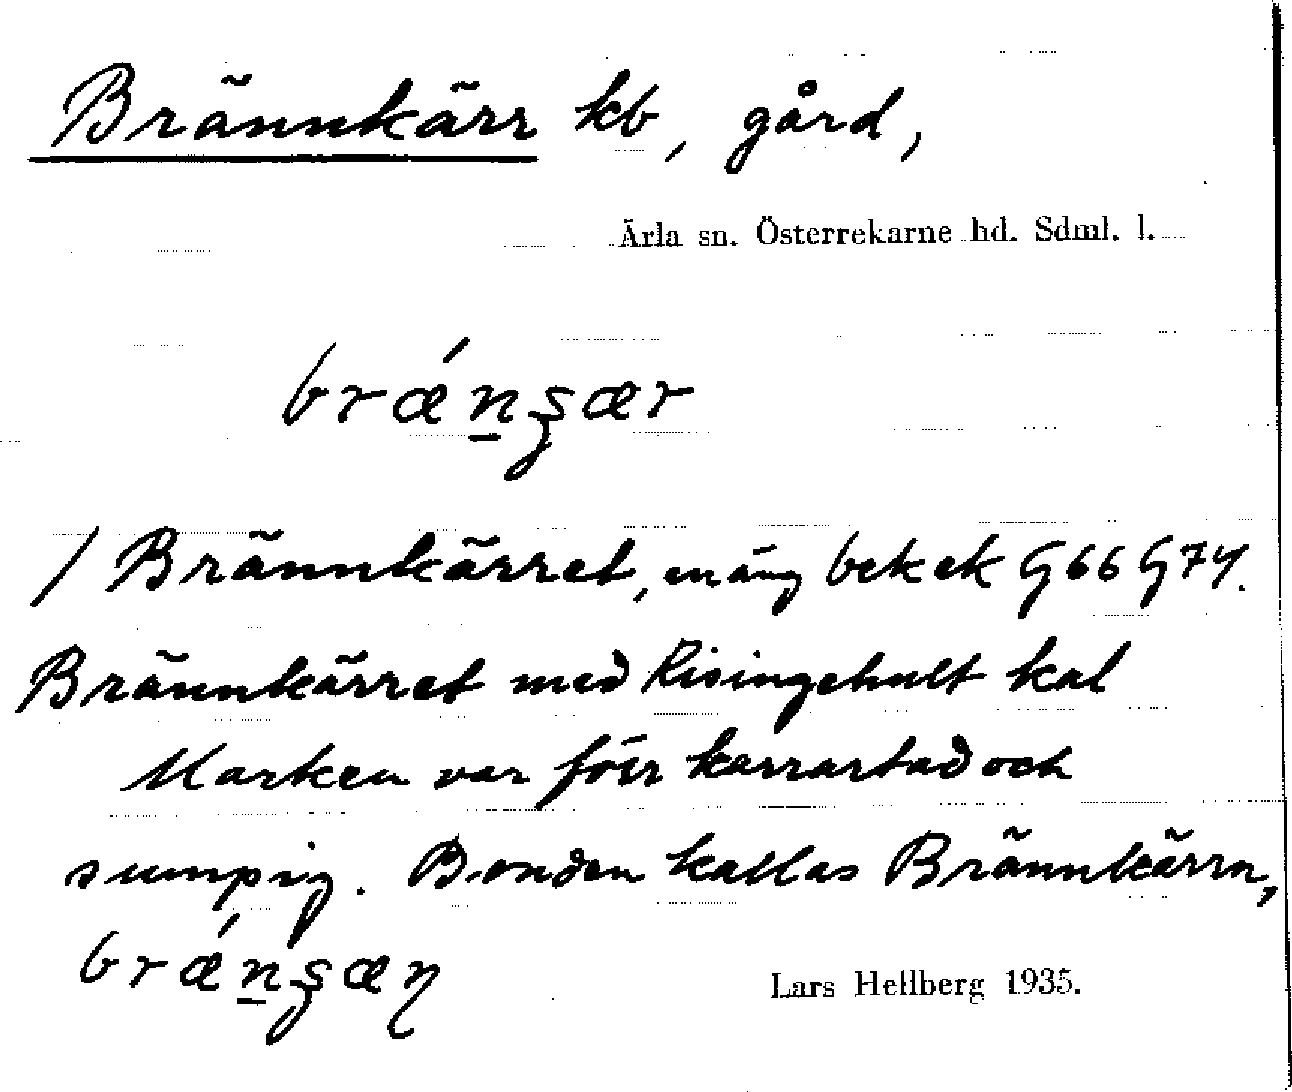 Brännkärr kb, gård,
Ärla sn. Österrekarne hd. Sdml. l.
brǽn̲ʒær
/ Brännkärret, en äng bek ek G66 G74.
Brännkärret med Risingehult kal
Marken var förr kärrartad och
sumpig. Bonden kallas Brännkärrn,
brǽn̲ʒæɳ
Lars Hellberg 1935.